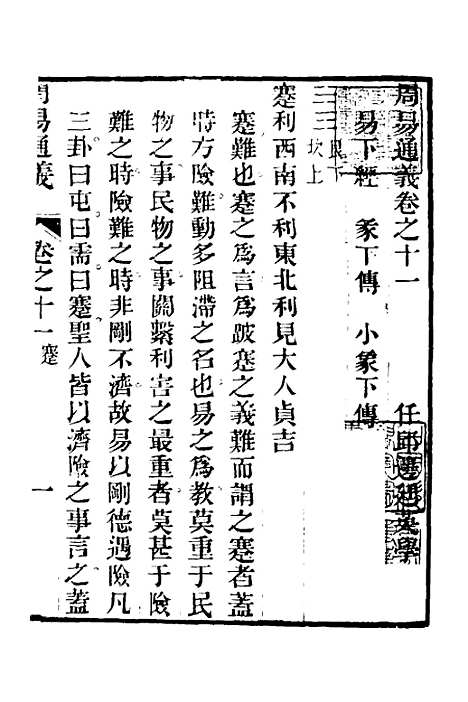 周易通義卷之十一
任邱邊廷英學
易下經 彖下傳 小象下傳
艮下
坎上
蹇利西南不利東北利見大人貞吉
蹇難也蹇之爲言爲跛蹇之義難而謂之蹇者蓋
時方險難動多阻滯之名也易之爲教莫重于民
物之事民物之事關繫利害之最重者莫甚于險
難之時險難之時非剛不濟故易以剛德遇險凡
三卦曰屯曰需曰蹇聖人皆以濟險之事言之蓋
周易通義 卷之十一 蹇 一